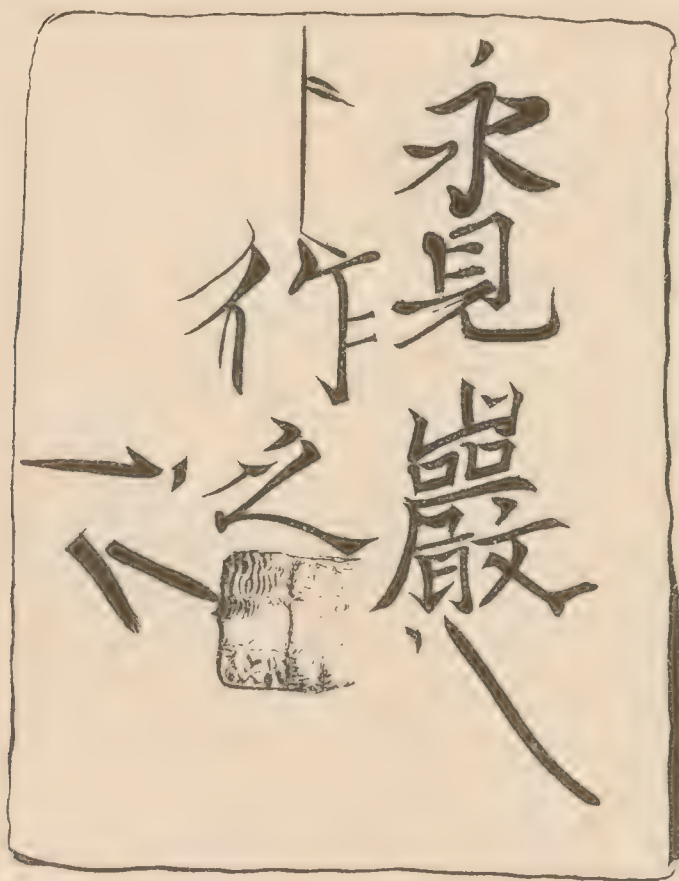 永見巖
作之